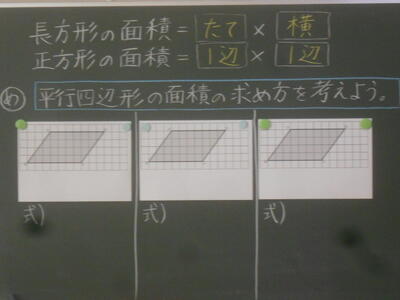 長方形の面積=たて×横
正方形の面積=1辺×1辺
め 平行四辺形の面積の求め方を考えよう。
式) 式) 式)